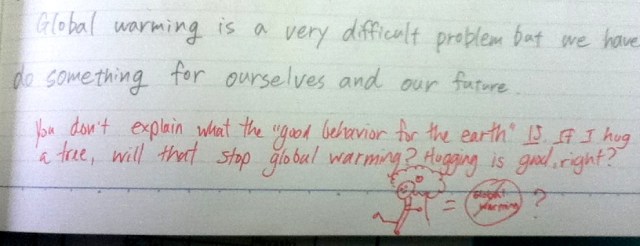 Global warming is a very difficult problem but we have
do something for ourselves and our future.
You don't explain what the "good behavior for the earth" IS. If I hug
a tree, will that stop global warming? Hugging is good, right?
= Global warming ?